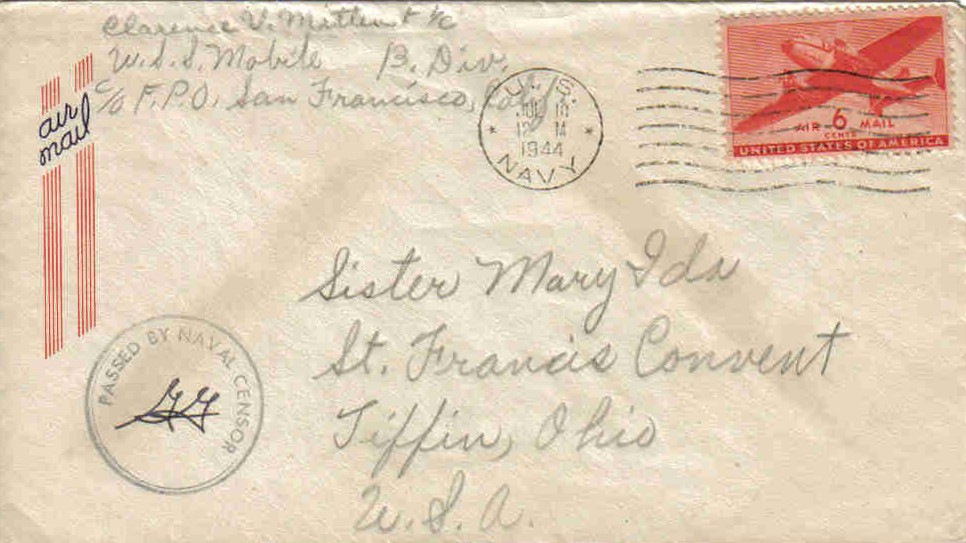 Clarence V.
U.S.S. Mobile B. Div.
c/o F.P.O. San Francisco, Calif.
air
mail
U. S.
JUL 18
12 M
1944
NAVY
AIR 6 MAIL
CENTS
UNITED STATES OF AMERICA
Sister Mary Ida
St. Francis Convent
Tiffin, Ohio
U.S.A.
PASSED BY NAVAL CENSOR